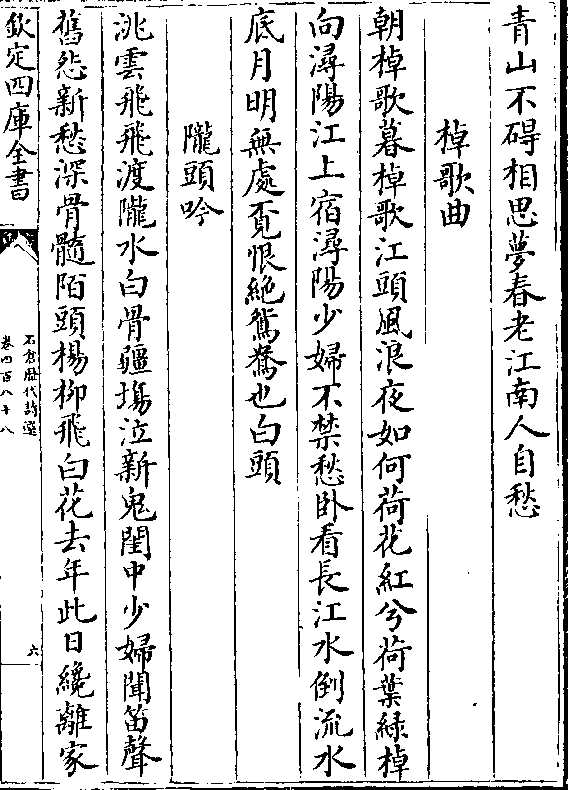 青山不碍相思夢春老江南人自愁
棹歌曲
朝棹歌暮棹歌江頭風浪夜如何荷花紅兮荷葉緑棹
向潯陽江上宿潯陽少婦不禁愁卧看長江水倒流水
底月明無處覔恨絶鴛鴦也白頭
隴頭吟
洮雲飛飛渡隴水白骨疆塲泣新鬼閨中少婦聞笛聲
舊愁新愁深骨髓陌頭楊柳飛白花去年此日纔離家
欽定四庫全書
石倉歴代詩選
卷四百八十八
六